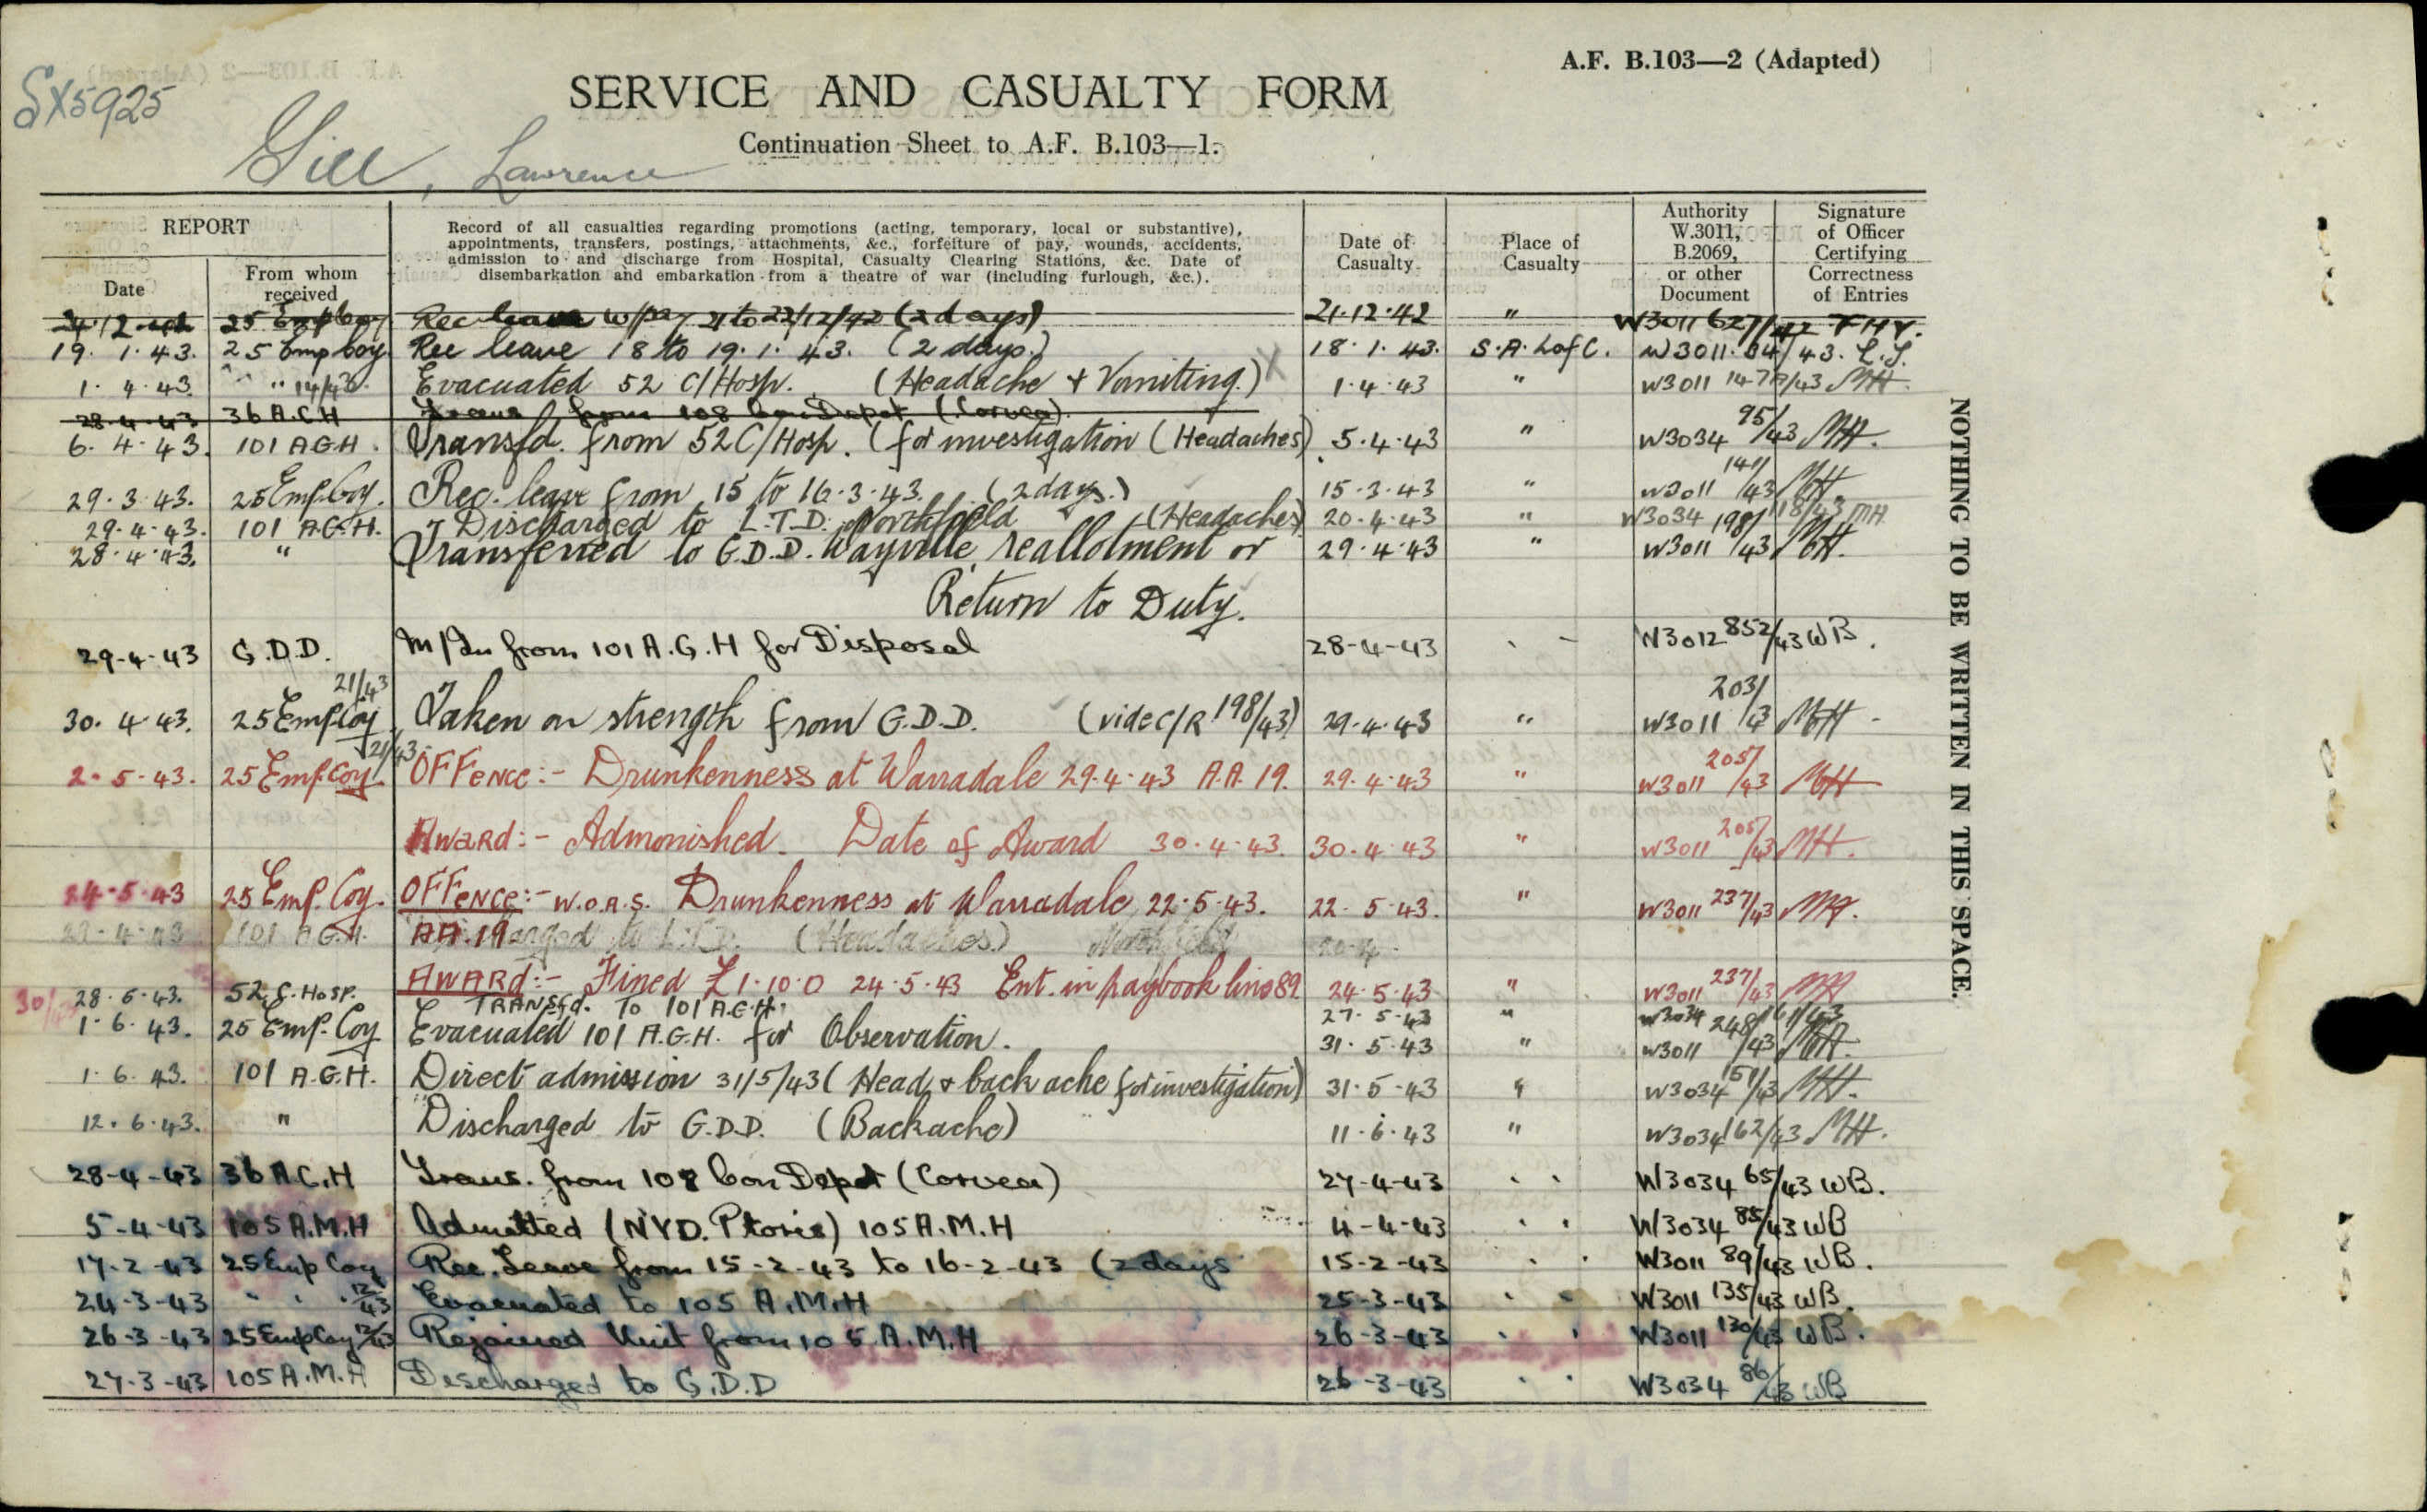 A.F. B.103—2 (Adapted)
SX5925
SERVICE AND CASUALTY FORM
Continuation Sheet to A.F. B.103—1.
Gill, Lawrence
REPORT
Date
From whom received
Record of all casualties regarding promotions (acting, temporary, local or substantive),
appointments, transfers, postings, attachments, &c., forfeiture of pay, wounds, accidents,
admission to and discharge from Hospital, Casualty Clearing Stations, &c. Date of
disembarkation and embarkation from a theatre of war (including furlough, &c.).
Date of Casualty
Place of Casualty
Authority W.3011, B.2069, or other Document
Signature of Officer Certifying Correctness of Entries
25 Emp Coy Rec leave w/pay 21 to 22/12/42 (2 days) 21.12.42 " W3011 627/42
19.1.43. 25 Emp Coy Rec leave 18 to 19.1.43. (2 days.) 18.1.43. S.A. L of C. W3011 34/43. L.S.
1.4.43 " " 14/43. Evacuated 52 C/Hosp. (Headache + Vomiting.) X 1.4.43 " W3011 147A/43 MH.
28.4.43 36 A.C.H Trans from 108 Con Depot (Corvea)
6.4.43. 101 AGH. Transfd. from 52 C/Hosp. (for investigation (Headaches) 5.4.43 " W3034 95/43 MH.
29.3.43. 25 Emp. Coy. Rec. leave from 15 to 16.3.43. (2 days.) 15.3.43 " W3011 141/43 MH
29.4.43. 101 A.G.H. Discharged to L.T.D. Northfield (Headaches) 20.4.43 " W3034 118/43 MH
28.4.43. " Transferred to G.D.D. Wayville, reallotment or 29.4.43 " W3011 198/43 MH.
Return to Duty.
29-4-43 G.D.D. M/In from 101 A.G.H for Disposal 28-4-43 " W3012 852/43 WB.
30.4.43. 25 Emp Coy 21/43 Taken on strength from G.D.D. (vide C/R 198/43) 29.4.43 " W3011 203/43 MH
2.5.43. 25 Emp. Coy. 21/43 OFFence:- Drunkenness at Warradale 29.4.43 A.A. 19. 29.4.43 " W3011 205/43 MH
AWard:- Admonished. Date of Award 30.4.43. 30.4.43 " W3011 205/43 MH.
24-5-43 25 Emp. Coy. OFFence:- W.O.A.S. Drunkenness at Warradale 22.5.43. 22.5.43. " W3011 237/43 MH.
29.4.43 101 A.G.H. AA.19 (Headaches) Northfield 20.4.
AWARd:- Fined £1.10.0 24.5.43 Ent. in paybook line 89 24.5.43 " W3011 237/43 MH
28.6.43. 52 C. Hosp. TRANSfd. To 101 A.G.H. 27.5.43 " W3034 161/43
1.6.43. 25 Emp. Coy 30/43 Evacuated 101 A.G.H. for Observation. 31.5.43 " W3011 248/43 MH.
1.6.43. 101 A.G.H. Direct admission 31/5/43 (Head & back ache for investigation) 31.5.43 " W3034 151/43 MH.
12.6.43. " Discharged to G.D.D. (Backache) 11.6.43 " W3034 162/43 MH.
28-4-43 36 A.C.H Trans. from 108 Con Depot (Corvea) 27-4-43 " W3034 65/43 WB.
5-4-43 105 A.M.H Admitted (NYD. Ptosis) 105 A.M.H 4-4-43 " W3034 85/43 WB
17-2-43 25 Emp Coy Rec. Leave from 15-2-43 to 16-2-43 (2 days 15-2-43 " W3011 89/43 WB.
24-3-43 " " 12/43 Evacuated to 105 A.M.H 25-3-43 " W3011 135/43 WB.
26-3-43 25 Emp Coy 12/43 Rejoined Unit from 105 A.M.H 26-3-43 " W3011 130/43 WB.
27-3-43 105 A.M.H Discharged to G.D.D 26-3-43 " W3034 86/43 WB
NOTHING TO BE WRITTEN IN THIS SPACE.